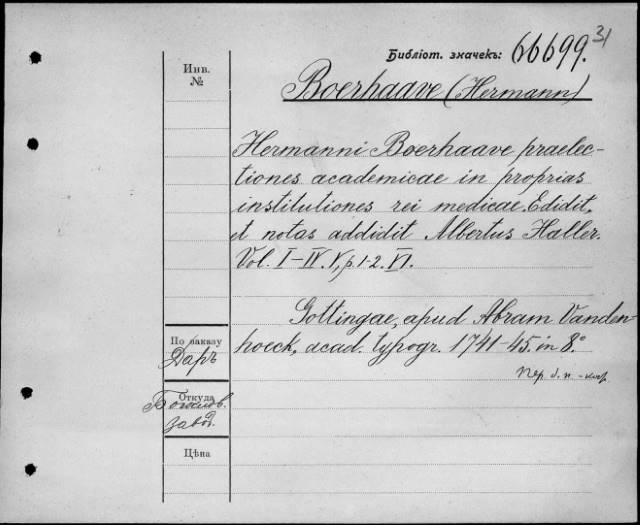 31
Библіот. значекъ: 66699.
Инв.
№
Boerhaave (Hermann)
Hermanni Boerhaave praelec-
tiones academicae in proprias
institutiones rei medicae. Edidit,
et notas addidit Albertus Haller.
Vol. I-IV. V, p. 1-2. VI.
Gottingae, apud Abram Vanden-
hoeck, acad. typogr. 1741-45. in 8.°
По заказу
Даръ
Откуда
завод.
Цѣна